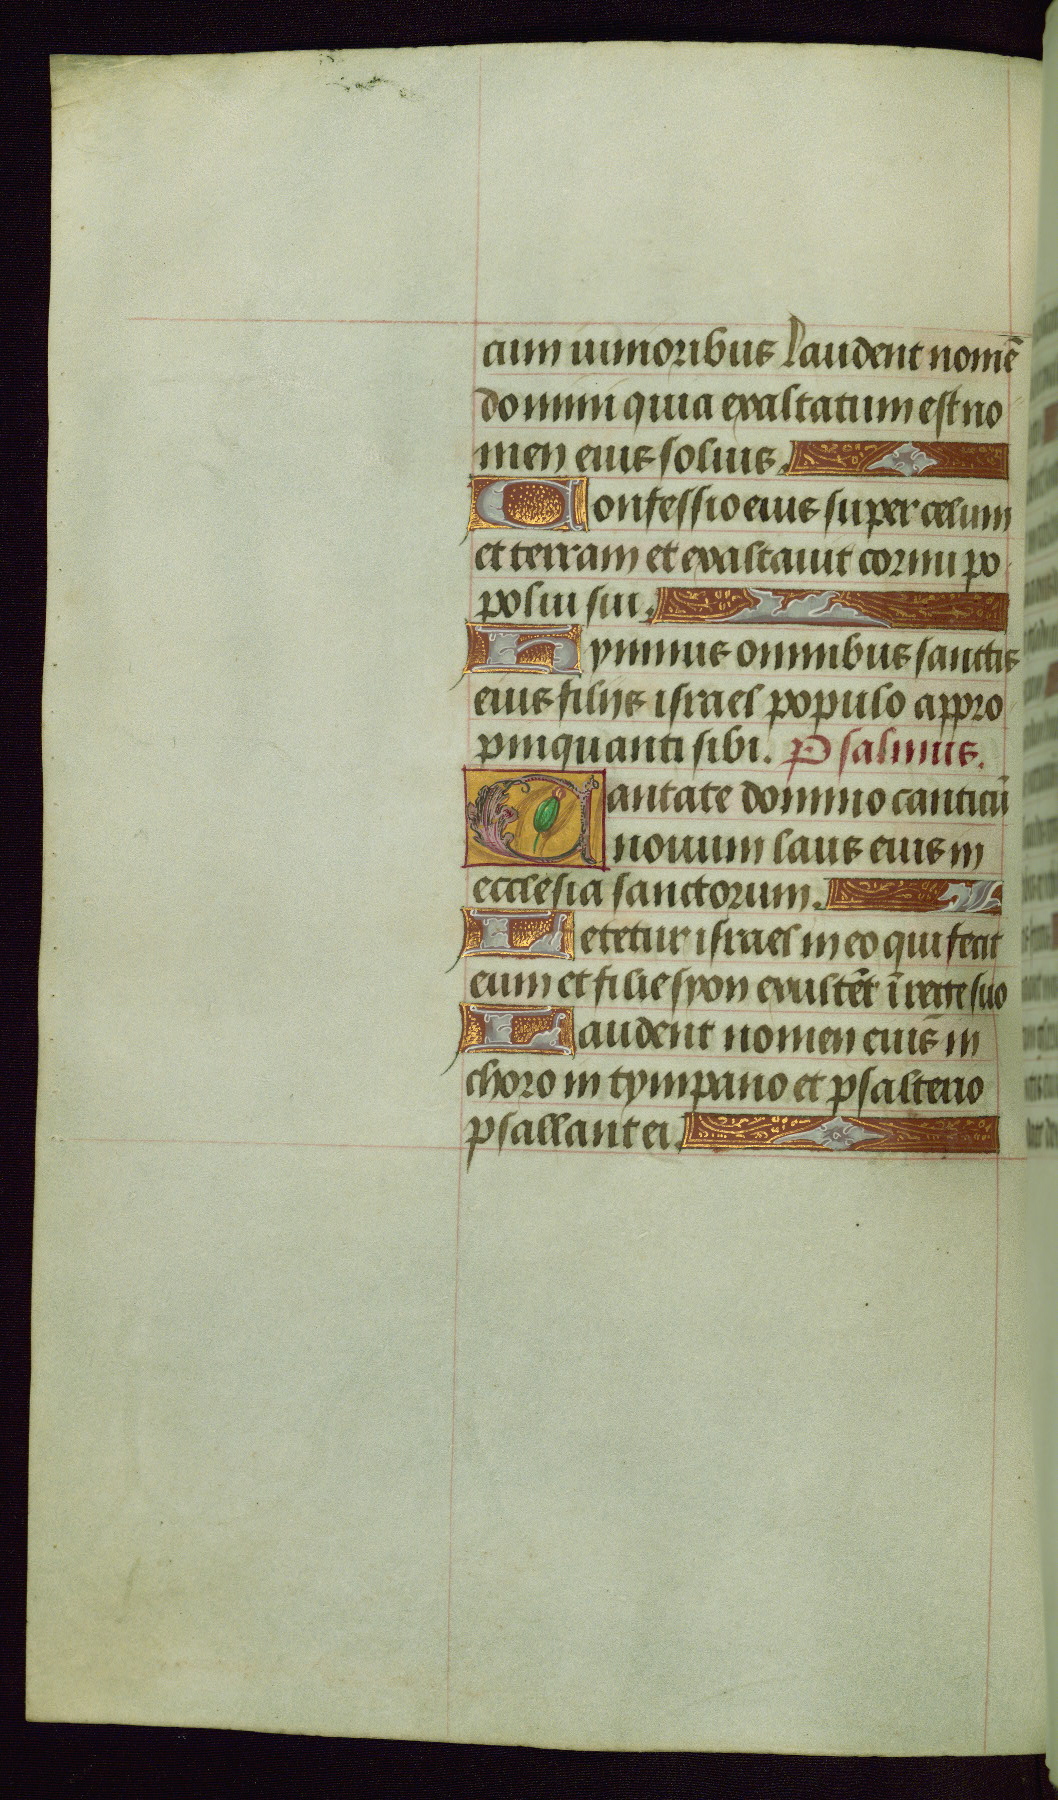 cum iunioribus Laudent nomē
domini quia exaltatum est no
men eius solius.
Confessio eius super celum
et terram et exaltauit cornu po
puli sui.
Hymnus omnibus sanctis
eius filijs israel populo appro
pinquanti sibi. Psalmus.
Cantate domino canticū
nouum laus eius in
ecclesia sanctorum.
Letetur israel in eo qui fecit
eum et filie syon exultēt ī rege suo
Laudent nomen eius in
choro in tympano et psalterio
psallant ei.